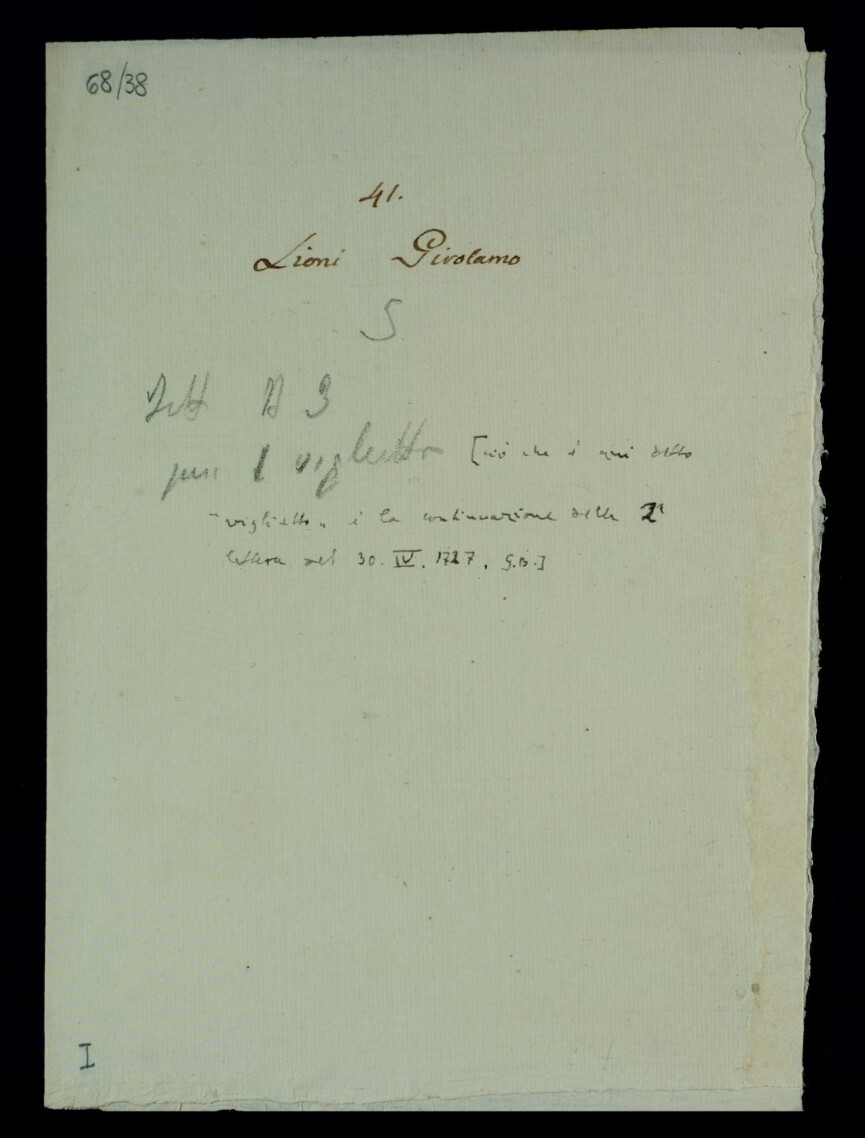 68/38
41.
Lioni Girolamo
5
Lett N 3
più 1 viglietto [ciò che è qui detto
"viglietto" è la continuazione della 2ª
lettera del 30. IV. 1727. G.B.]
I